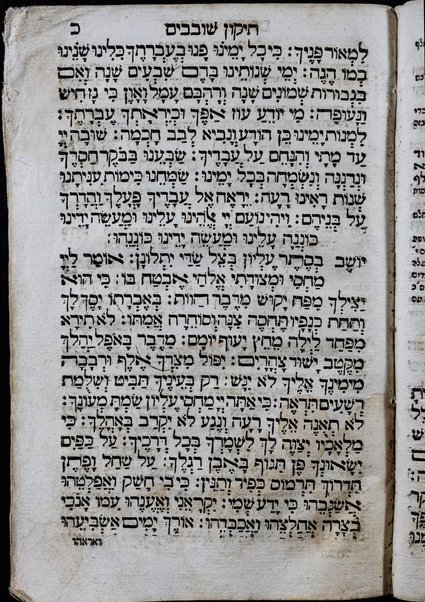 תיקון שובבים
כ
למאור פניך: כי כל ימינו פנו בעברתך כלינו שנינו
כמו הגה: ימי שנותינו בהם שבעים שנה ואם
בגבורות שמונים שנה ורהבם עמל ואון כי גז חיש
ונעופה: מי יודע עוז אפך וכיראתך עברתך:
למנות ימינו כן הודע ונביא לבב חכמה: שובה יי
עד מתי והנחם על עבדיך: שבענו בבקר חסדך
ונרננה ונשמחה בכל ימינו: שמחנו כימות עניתנו
שנות ראינו רעה: יראה אל עבדיך פעלך והדרך
על בניהם: ויהי נועם יי אלהינו עלינו ומעשה ידינו
כוננה עלינו ומעשה ידינו כוננהו:
יושב בסתר עליון בצל שדי יתלונן: אומר ליי
מחסי ומצודתי אלהי אבטח בו: כי הוא
יצילך מפח יקוש מדבר הוות: באברתו יסך לך
ותחת כנפיו תחסה צנה וסוחרה אמתו: לא תירא
מפחד לילה מחץ יעוף יומם: מדבר באפל יהלך
מקטב ישוד צהרים: יפול מצדך אלף ורבבה
מימינך אליך לא יגש: רק בעיניך תביט ושלמת
רשעים תראה: כי אתה יי מחסי עליון שמת מעונך:
לא תאנה אליך רעה ונגע לא יקרב באהלך: כי
מלאכיו יצוה לך לשמרך בכל דרכיך: על כפים
ישאונך פן תגוף באבן רגלך: על שחל ופתן
תדרוך תרמוס כפיר ותנין: כי בי חשק ואפלטהו
אשגבהו כי ידע שמי: יקראני ואענהו עמו אנכי
בצרה אחלצהו ואכבדהו: אורך ימים אשביעהו
ואראהו